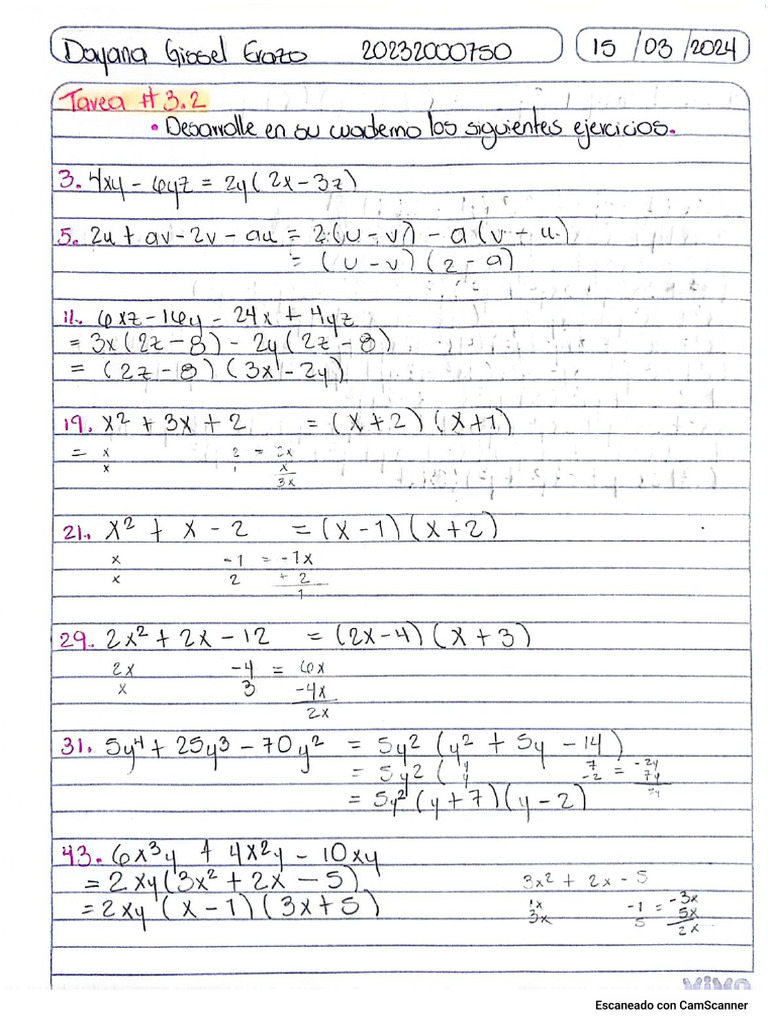 Dayana Gissel Erazo 20232000750 15 /03 /2024
Tarea # 3.2
• Desarrolle en su cuaderno los siguientes ejercicios.
3. 4xy - 6yz = 2y(2x - 3z)
5. 2u + av - 2v - au = 2(u - v) - a(v + u)
= (u - v)(2 - a)
11. 6xz - 16y - 24x + 4yz
= 3x(2z - 8) - 2y(2z - 8)
= (2z - 8)(3x - 2y)
19. x² + 3x + 2 = (x + 2)(x + 1)
= x 2 = 2x
x 1 x
3x
21. x² + x - 2 = (x - 1)(x + 2)
x -1 = -1x
x 2 + 2
1
29. 2x² + 2x - 12 = (2x - 4)(x + 3)
2x -4 = 6x
x 3 -4x
2x
31. 5y⁴ + 25y³ - 70y² = 5y²(y² + 5y - 14)
= 5y²( y 7 = -2y
y -2 7y
= 5y²(y + 7)(y - 2)
43. 6x³y + 4x²y - 10xy
= 2xy(3x² + 2x - 5) 3x² + 2x - 5
= 2xy(x - 1)(3x + 5) 1x -1 = -3x
3x 5 5x
2x
vivo
Escaneado con CamScanner